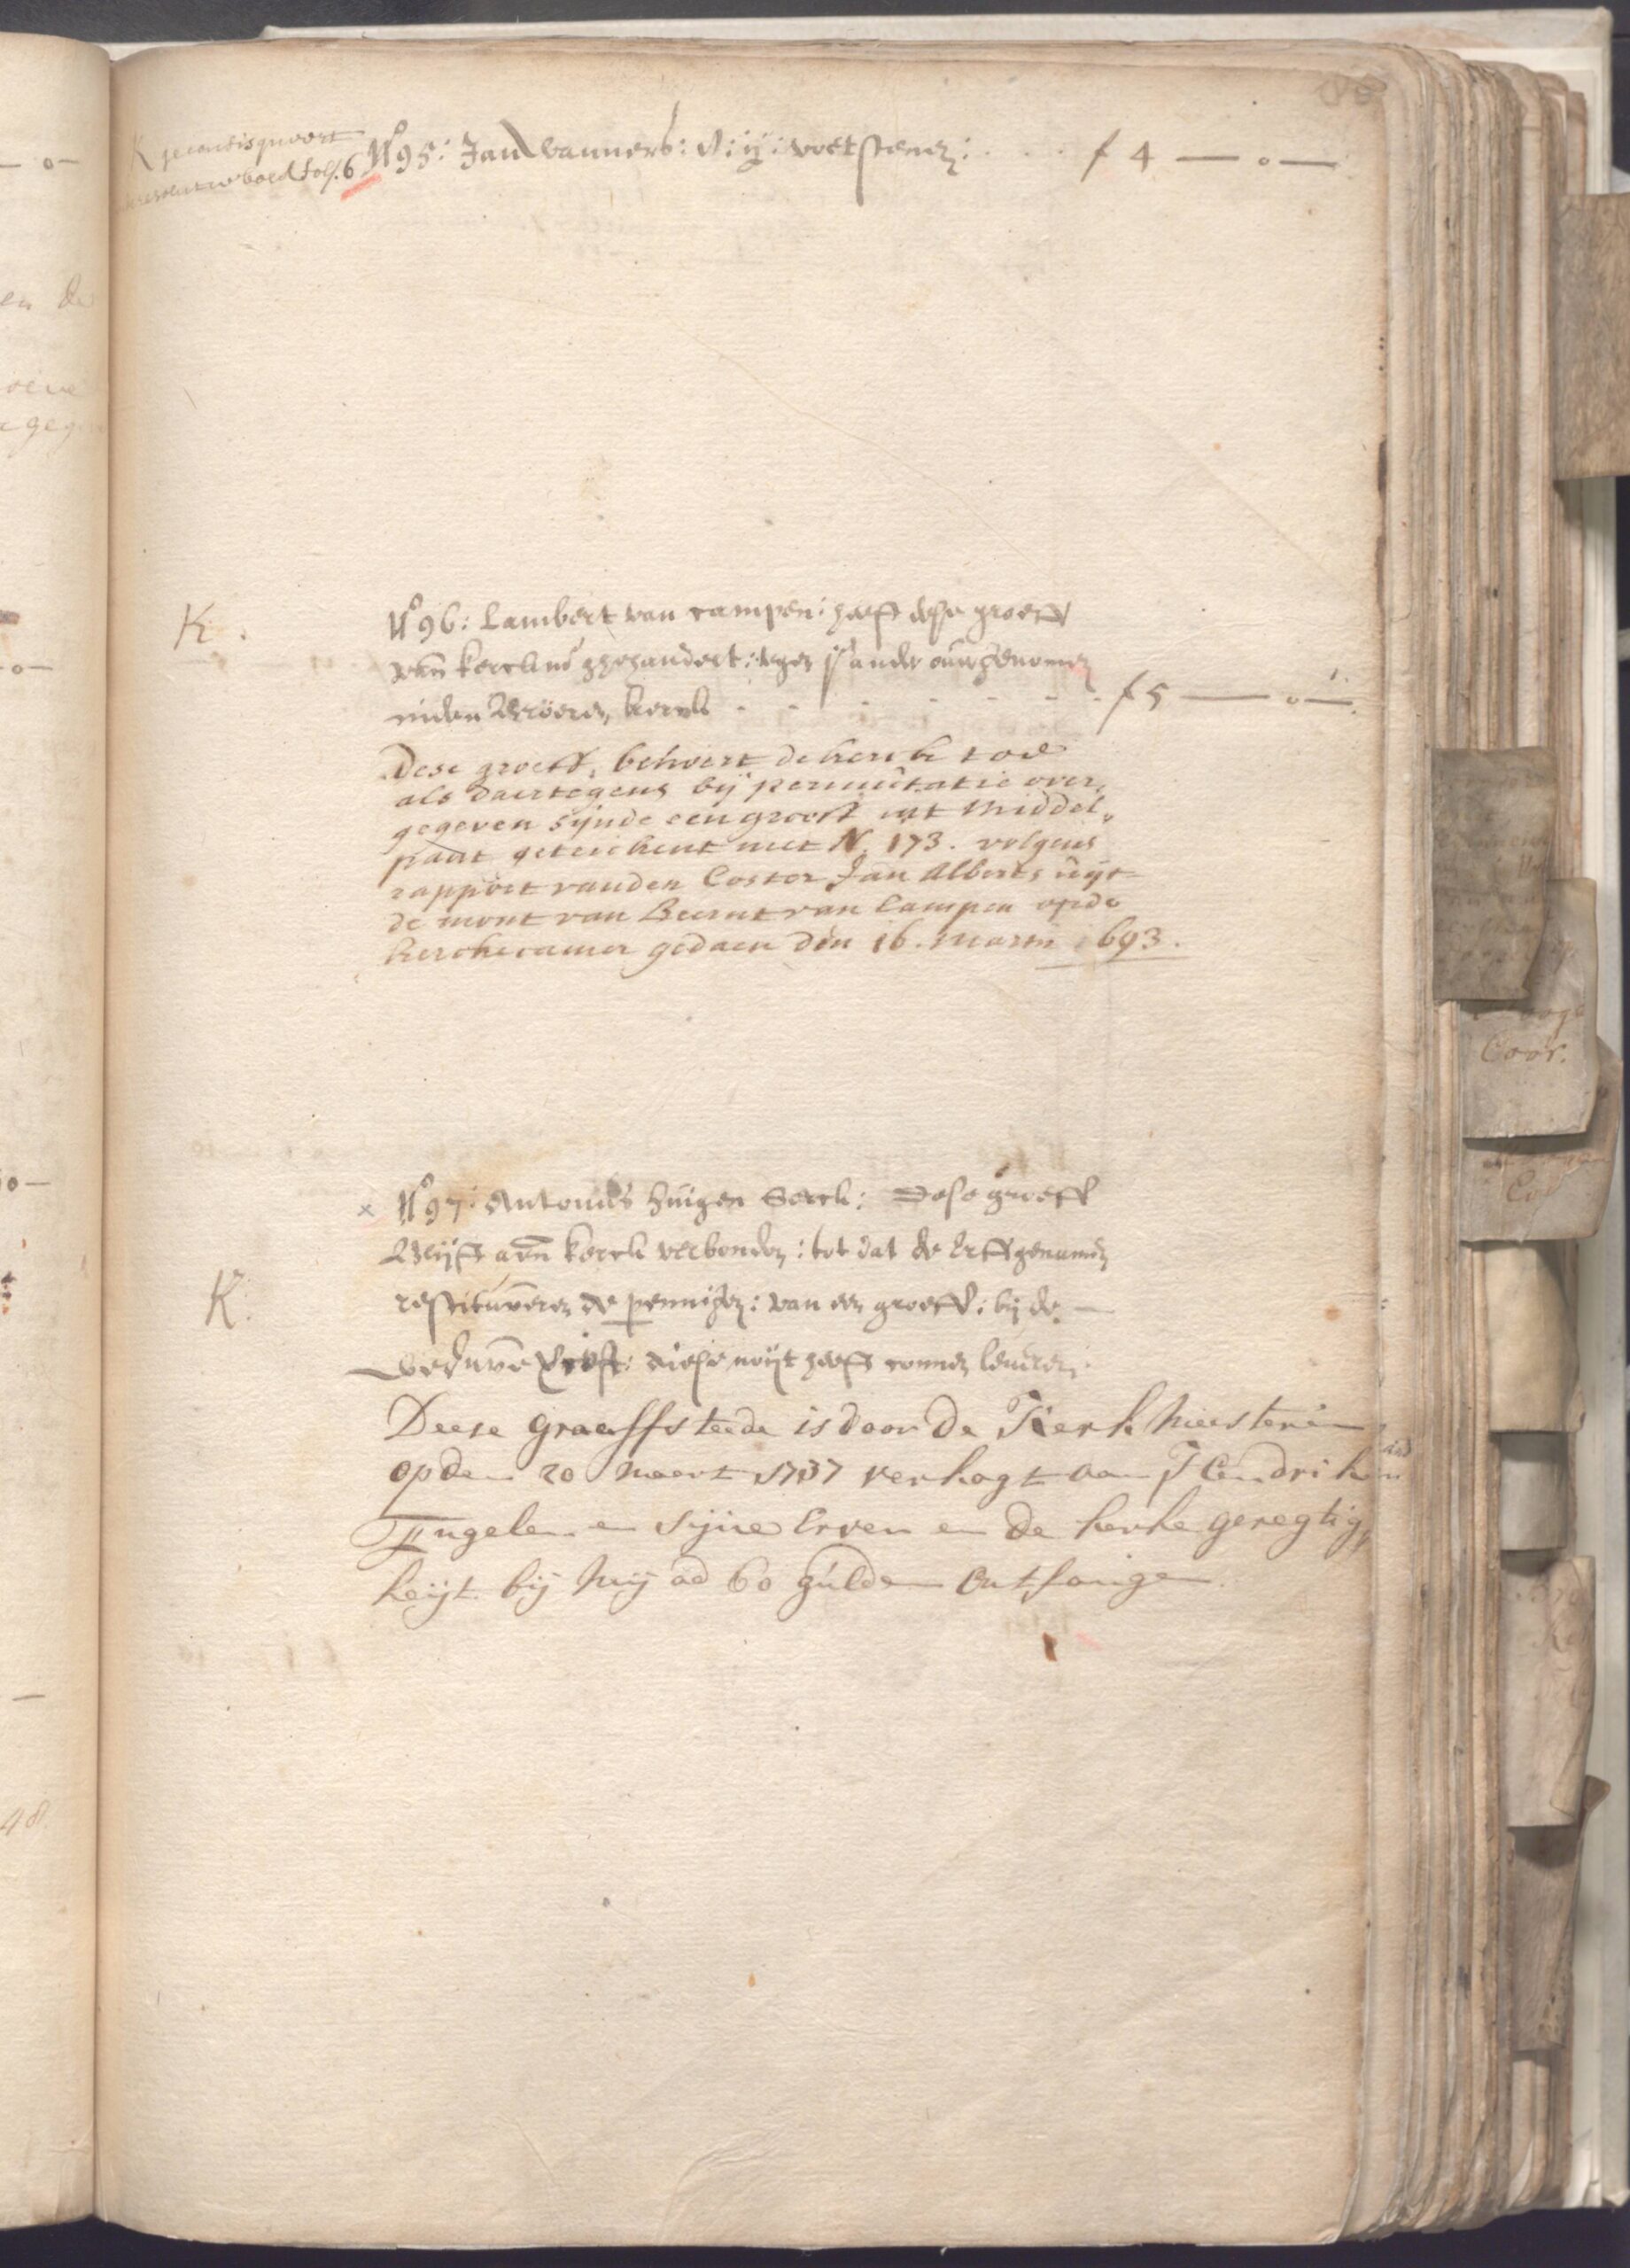 K geconfisqueert
resolutieboeck fol. 6
No 95: Jan Wanners: ij: voetstenen: . . . . f 4 — o —
K. No 96: Lambert van campen: heeft dese groeff
van kerck gehandert: tegen ander genomen
in den Broeren kerck . . . . . . f 5 — o —
Dese groeff, behoert de kercke toe
als daertegens bij permutatie over,
gegeven sijnde een groeft int Middel,
pant geteickent met N. 173. volgens
rapport vanden Coster Jan Alberts uijt
de mont van Beernt van Campen op de
kerckecamer gedaen den 16. Martii 1693.
x No 97: Antonius Huigen Serck: Dese groeff
Blijft aen kerck verbonden: tot dat de Erffgenamen
K. restitueren de penningen: van een groeff: bij de —
Weduwe : die se noijt heeft connen leveren:
Deese graeffsteede is door de Kerkmeesteren
op den 20 Maert 1737 verkogt aan Hendrik
Engelen en sijne Erven en de kerke geregtig,
heijt bij mij ad 60 gulden Ontfangen
Coor.